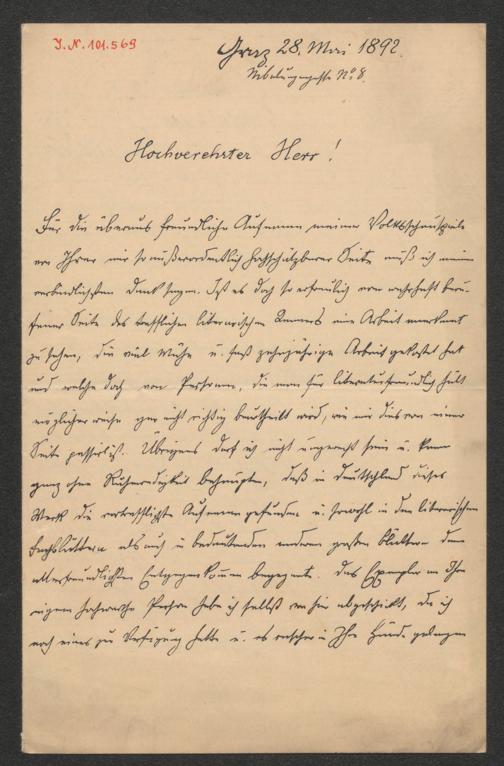 J.N. 101.569
Graz 28. Mai 1892.
Nibelungengasse No. 8.
Hochverehrter Herr!
Für die überaus freundliche Aufnahme meiner Volksschauspiele
von Ihrer mir so außerordentlich hochschätzbarer Seite muß ich meinen
verbindlichsten Dank sagen. Ist es doch so erfreulich von wahrhaft beru-
fener Seite des trefflichen literarischen Kenners eine Arbeit anerkannt
zu sehen, die viel Mühe u. fast zehnjährige Arbeit gekostet hat
und welche doch von Personen, die man für literaturfreundlich hält
möglicher weise gar nicht richtig beurtheilt wird, wie mir dies von einer
Seite passirt ist. Übrigens darf ich nicht ungerecht sein u. kann
ganz ohne Ruhmredigkeit behaupten, daß in Deutschland dieses
Werk die vortrefflichste Aufnahme gefunden u. sowohl in den literarischen
Fachblättern als auch in bedeutenden anderen großen Blättern dem
allerfreundlichsten Entgegenkommen begegnete. Das Exemplar an Ihre
eigene hochwerthe Person habe ich selbst von hier abgeschickt, da ich
noch eines zur Verfügung hatte u. es rascher in Ihre Hände gelangen